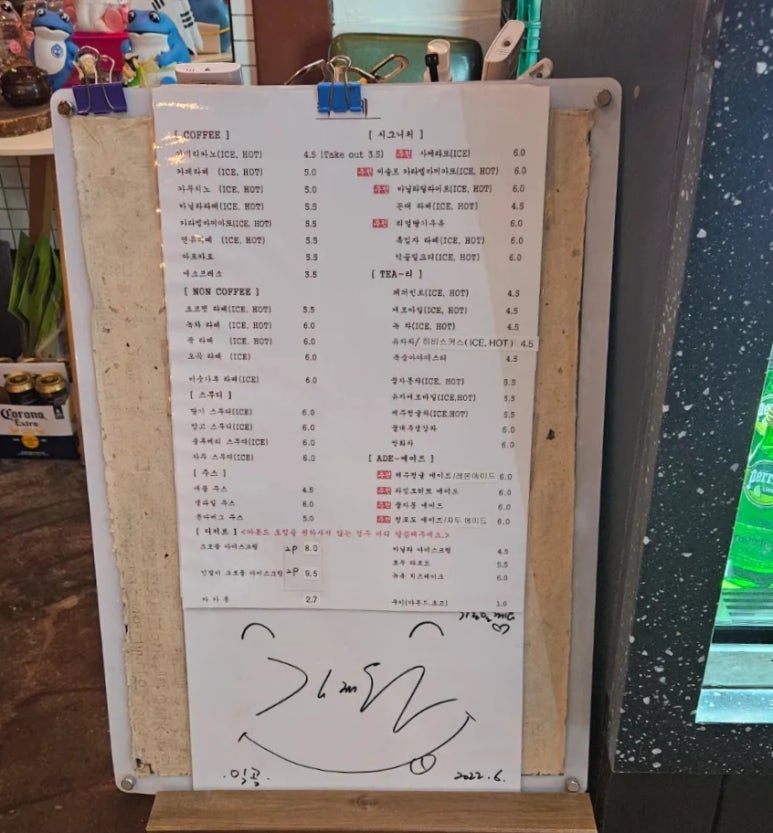 [ COFFEE ]
아메리카노(ICE, HOT) 4.5 (Take out 3.5)
카페라떼 (ICE, HOT) 5.0
카푸치노 (ICE, HOT) 5.0
바닐라라떼(ICE, HOT) 5.5
카라멜마끼아또(ICE, HOT) 5.5
연유라떼 (ICE, HOT) 5.5
아포카토 5.5
에스프레소 3.5
[ NON COFFEE ]
초코렛 라떼(ICE, HOT) 5.5
녹차 라떼 (ICE, HOT) 6.0
쑥 라떼 (ICE, HOT) 6.0
오곡 라떼 (ICE) 6.0
미숫가루 라떼(ICE) 6.0
[ 스무디 ]
딸기 스무디(ICE) 6.0
망고 스무디(ICE) 6.0
블루베리 스무디(ICE) 6.0
자두 스무디(ICE) 6.0
[ 주스 ]
애플 주스 4.5
생과일 주스 6.0
주스 5.0
[ 시그니처 ]
추천 샤케라또(ICE) 6.0
추천 카라멜마끼아또(ICE, HOT) 6.0
추천 (ICE, HOT) 6.0
라떼(ICE, HOT) 4.5
추천 리얼딸기우유 6.0
흑임자 라떼(ICE, HOT) 6.0
(ICE, HOT) 6.0
[ TEA-티 ]
페퍼민트(ICE, HOT) 4.5
캐모마일(ICE, HOT) 4.5
녹 차(ICE, HOT) 4.5
유자차/ 히비스커스(ICE, HOT) 4.5
복숭아아이스티 4.5
꿀자몽차(ICE, HOT) 5.5
유자캐모마일(ICE,HOT) 5.5
제주청귤차(ICE,HOT) 5.5
6.0
쌍화차 6.0
[ ADE-에이드 ]
추천 제주청귤 에이드/레몬에이드 6.0
추천 라임모히또 에이드 6.0
추천 꿀자몽 에이드 6.0
추천 청포도 에이드/자두 에이드 6.0
[ 디저트 ] <아몬드 토핑을 원하시지 않는 경우 미리 말씀해주세요.>
크로플 아이스크림 2P 8.0
인절미 크로플 아이스크림 2P 9.5
2.7
바닐라 아이스크림 4.5
호두 타르트 5.5
뉴욕 치즈케이크 6.0
쿠키(아몬드,초코) 1.0
2022.6.
Corona
Extra
perrier